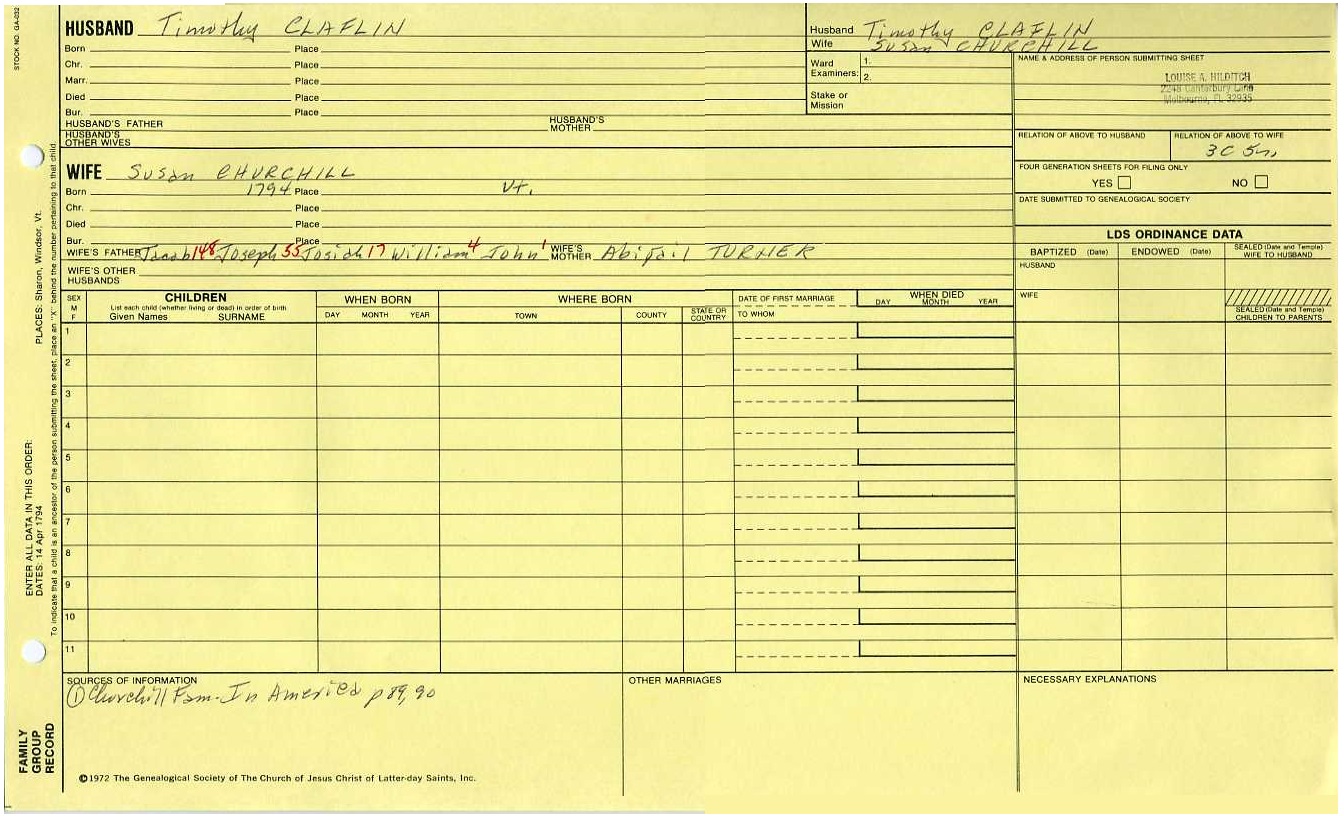 STOCK NO. GA-032
HUSBAND Timothy CLAFLIN
Born Place
Chr. Place
Marr. Place
Died Place
Bur. Place
HUSBAND'S FATHER HUSBAND'S MOTHER
HUSBAND'S OTHER WIVES
Husband Timothy CLAFLIN
Wife Susan CHURCHILL
Ward Examiners: 1.
2.
Stake or Mission
NAME & ADDRESS OF PERSON SUBMITTING SHEET
LOUISE A. HILDITCH
2248 Canterbury Lane
Melbourne, FL 32935
RELATION OF ABOVE TO HUSBAND RELATION OF ABOVE TO WIFE
3C 5r,
FOUR GENERATION SHEETS FOR FILING ONLY
YES NO
DATE SUBMITTED TO GENEALOGICAL SOCIETY
WIFE Susan CHURCHILL
Born 1794 Place Vt.
Chr. Place
Died Place
Bur. Place
WIFE'S FATHER Jacob 148 Joseph 55 Josiah 17 William 4 John 1 WIFE'S MOTHER Abigail TURNER
WIFE'S OTHER HUSBANDS
LDS ORDINANCE DATA
BAPTIZED (Date) ENDOWED (Date) SEALED (Date and Temple) WIFE TO HUSBAND
HUSBAND
WIFE
SEALED (Date and Temple) CHILDREN TO PARENTS
SEX M F
CHILDREN
List each child (whether living or dead) in order of birth
Given Names SURNAME
WHEN BORN
DAY MONTH YEAR
WHERE BORN
TOWN COUNTY STATE OR COUNTRY
DATE OF FIRST MARRIAGE
TO WHOM
WHEN DIED
DAY MONTH YEAR
1
2
3
4
5
6
7
8
9
10
11
SOURCES OF INFORMATION
① Churchill Fam. In America p 89, 90
OTHER MARRIAGES
NECESSARY EXPLANATIONS
©1972 The Genealogical Society of The Church of Jesus Christ of Latter-day Saints, Inc.
FAMILY GROUP RECORD
ENTER ALL DATA IN THIS ORDER:
DATES: 14 Apr 1794 PLACES: Sharon, Windsor, Vt.
To indicate that a child is an ancestor of the person submitting the sheet, place an "X" behind the number pertaining to that child.